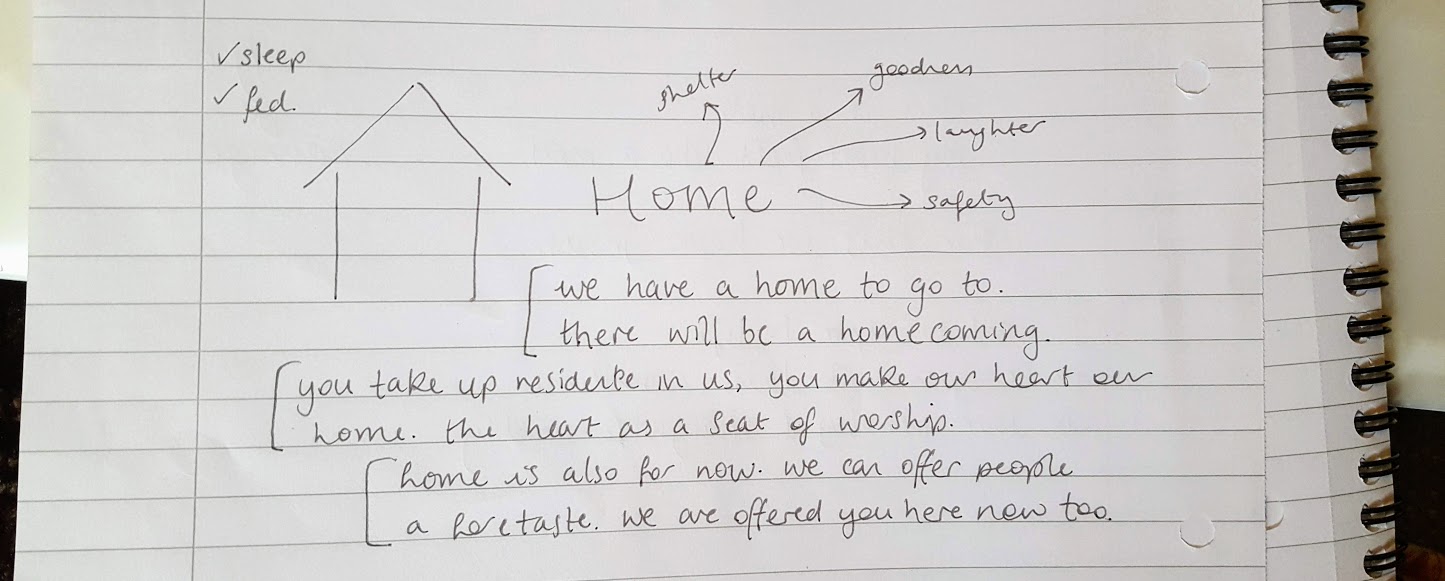 ✓ sleep
✓ fed.
shelter
goodness
laughter
Home
safety
we have a home to go to.
there will be a homecoming.
you take up residence in us, you make our heart our
home. the heart as a seat of worship.
home is also for now. we can offer people
a foretaste. we are offered you here now too.